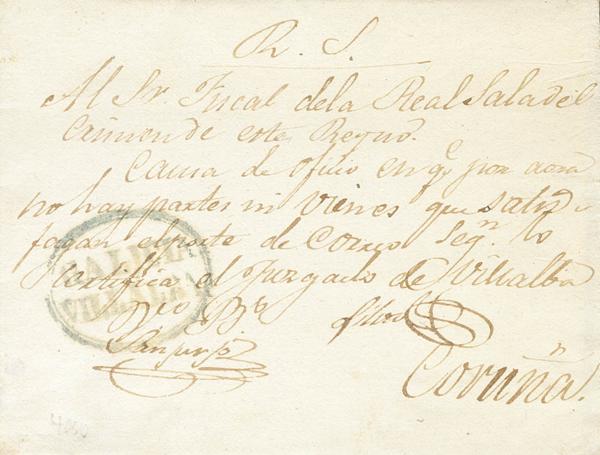 R. S.
Al Sr. Fiscal dela Real Sala del
Crimen de este Reyno.
Causa de oficio en q.e por aora
no hay partes ni vienes que satis
fagan el porte de Correo Seg.n lo
certifica el Juzgado de Villalba
GALICIA
VILLALBA
Sanjurjo
Coruña.
4000